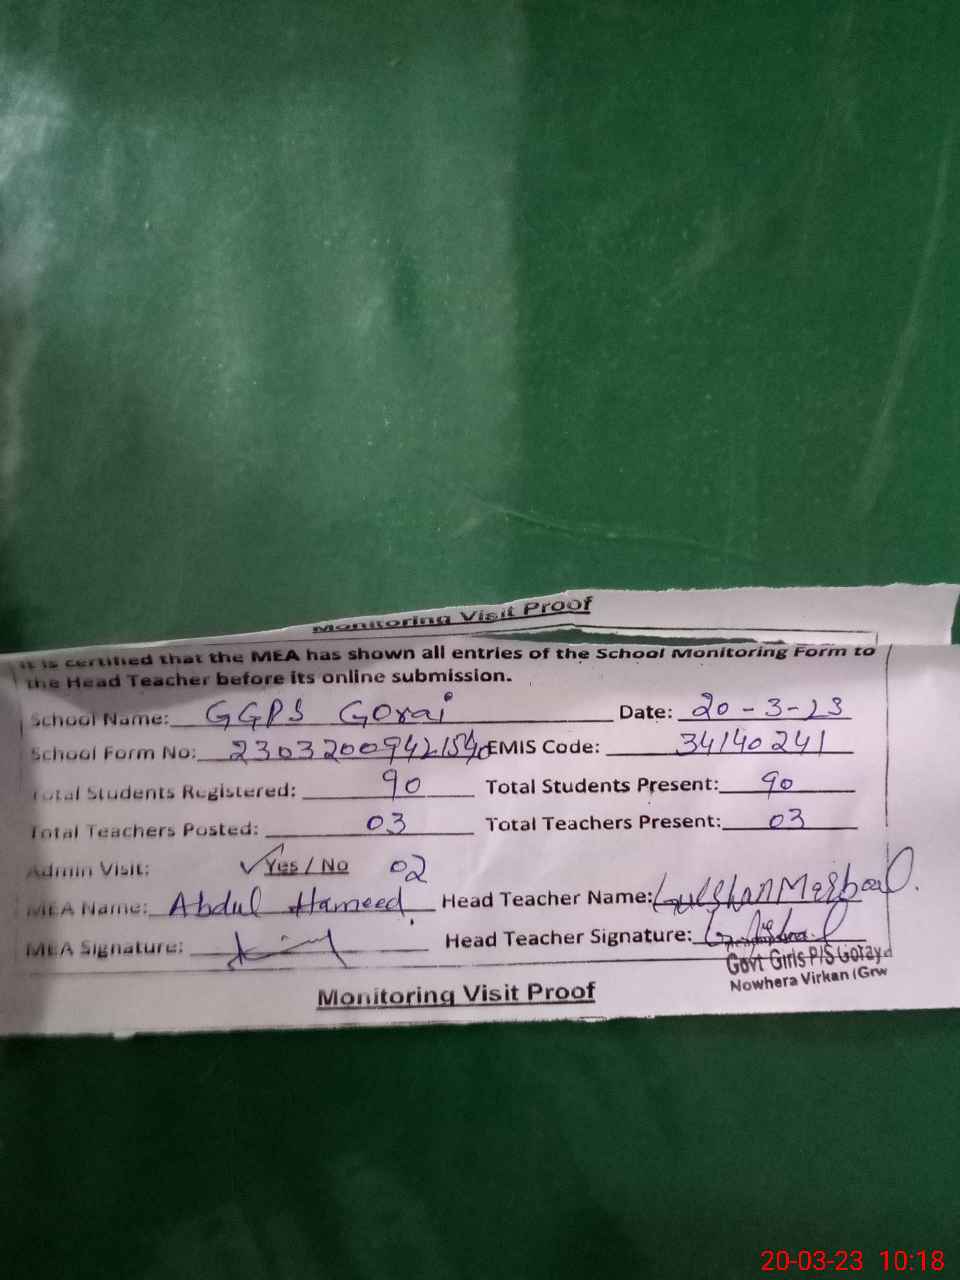 Monitoring Visit Proof
It is certified that the MEA has shown all entries of the School Monitoring Form to
the Head Teacher before its online submission.
School Name: GGPS Gorai Date: 20-3-23
School Form No: EMIS Code: 34140241
Total Students Registered: 90 Total Students Present: 90
Total Teachers Posted: 03 Total Teachers Present: 03
Admin Visit: ✓Yes / No 02
MEA Name: Abdul Hameed Head Teacher Name: Gulshan
MEA Signature: Head Teacher Signature:
Govt Girls P/S Goraya
Nowhera Virkan (Grw
Monitoring Visit Proof
20-03-23 10:18